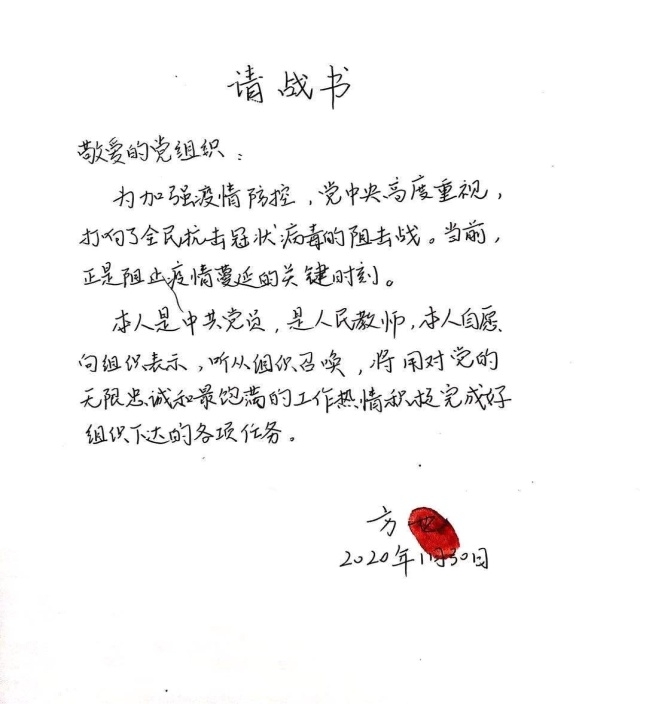 请战书
敬爱的党组织：
为加强疫情防控，党中央高度重视，
打响了全民抗击冠状病毒的阻击战。当前，
正是阻止疫情蔓延的关键时刻。
本人是中共党员，是人民教师，本人自愿
向组织表示，听从组织召唤，将用对党的
无限忠诚和最饱满的工作热情积极完成好
组织下达的各项任务。
方
2020年1月30日